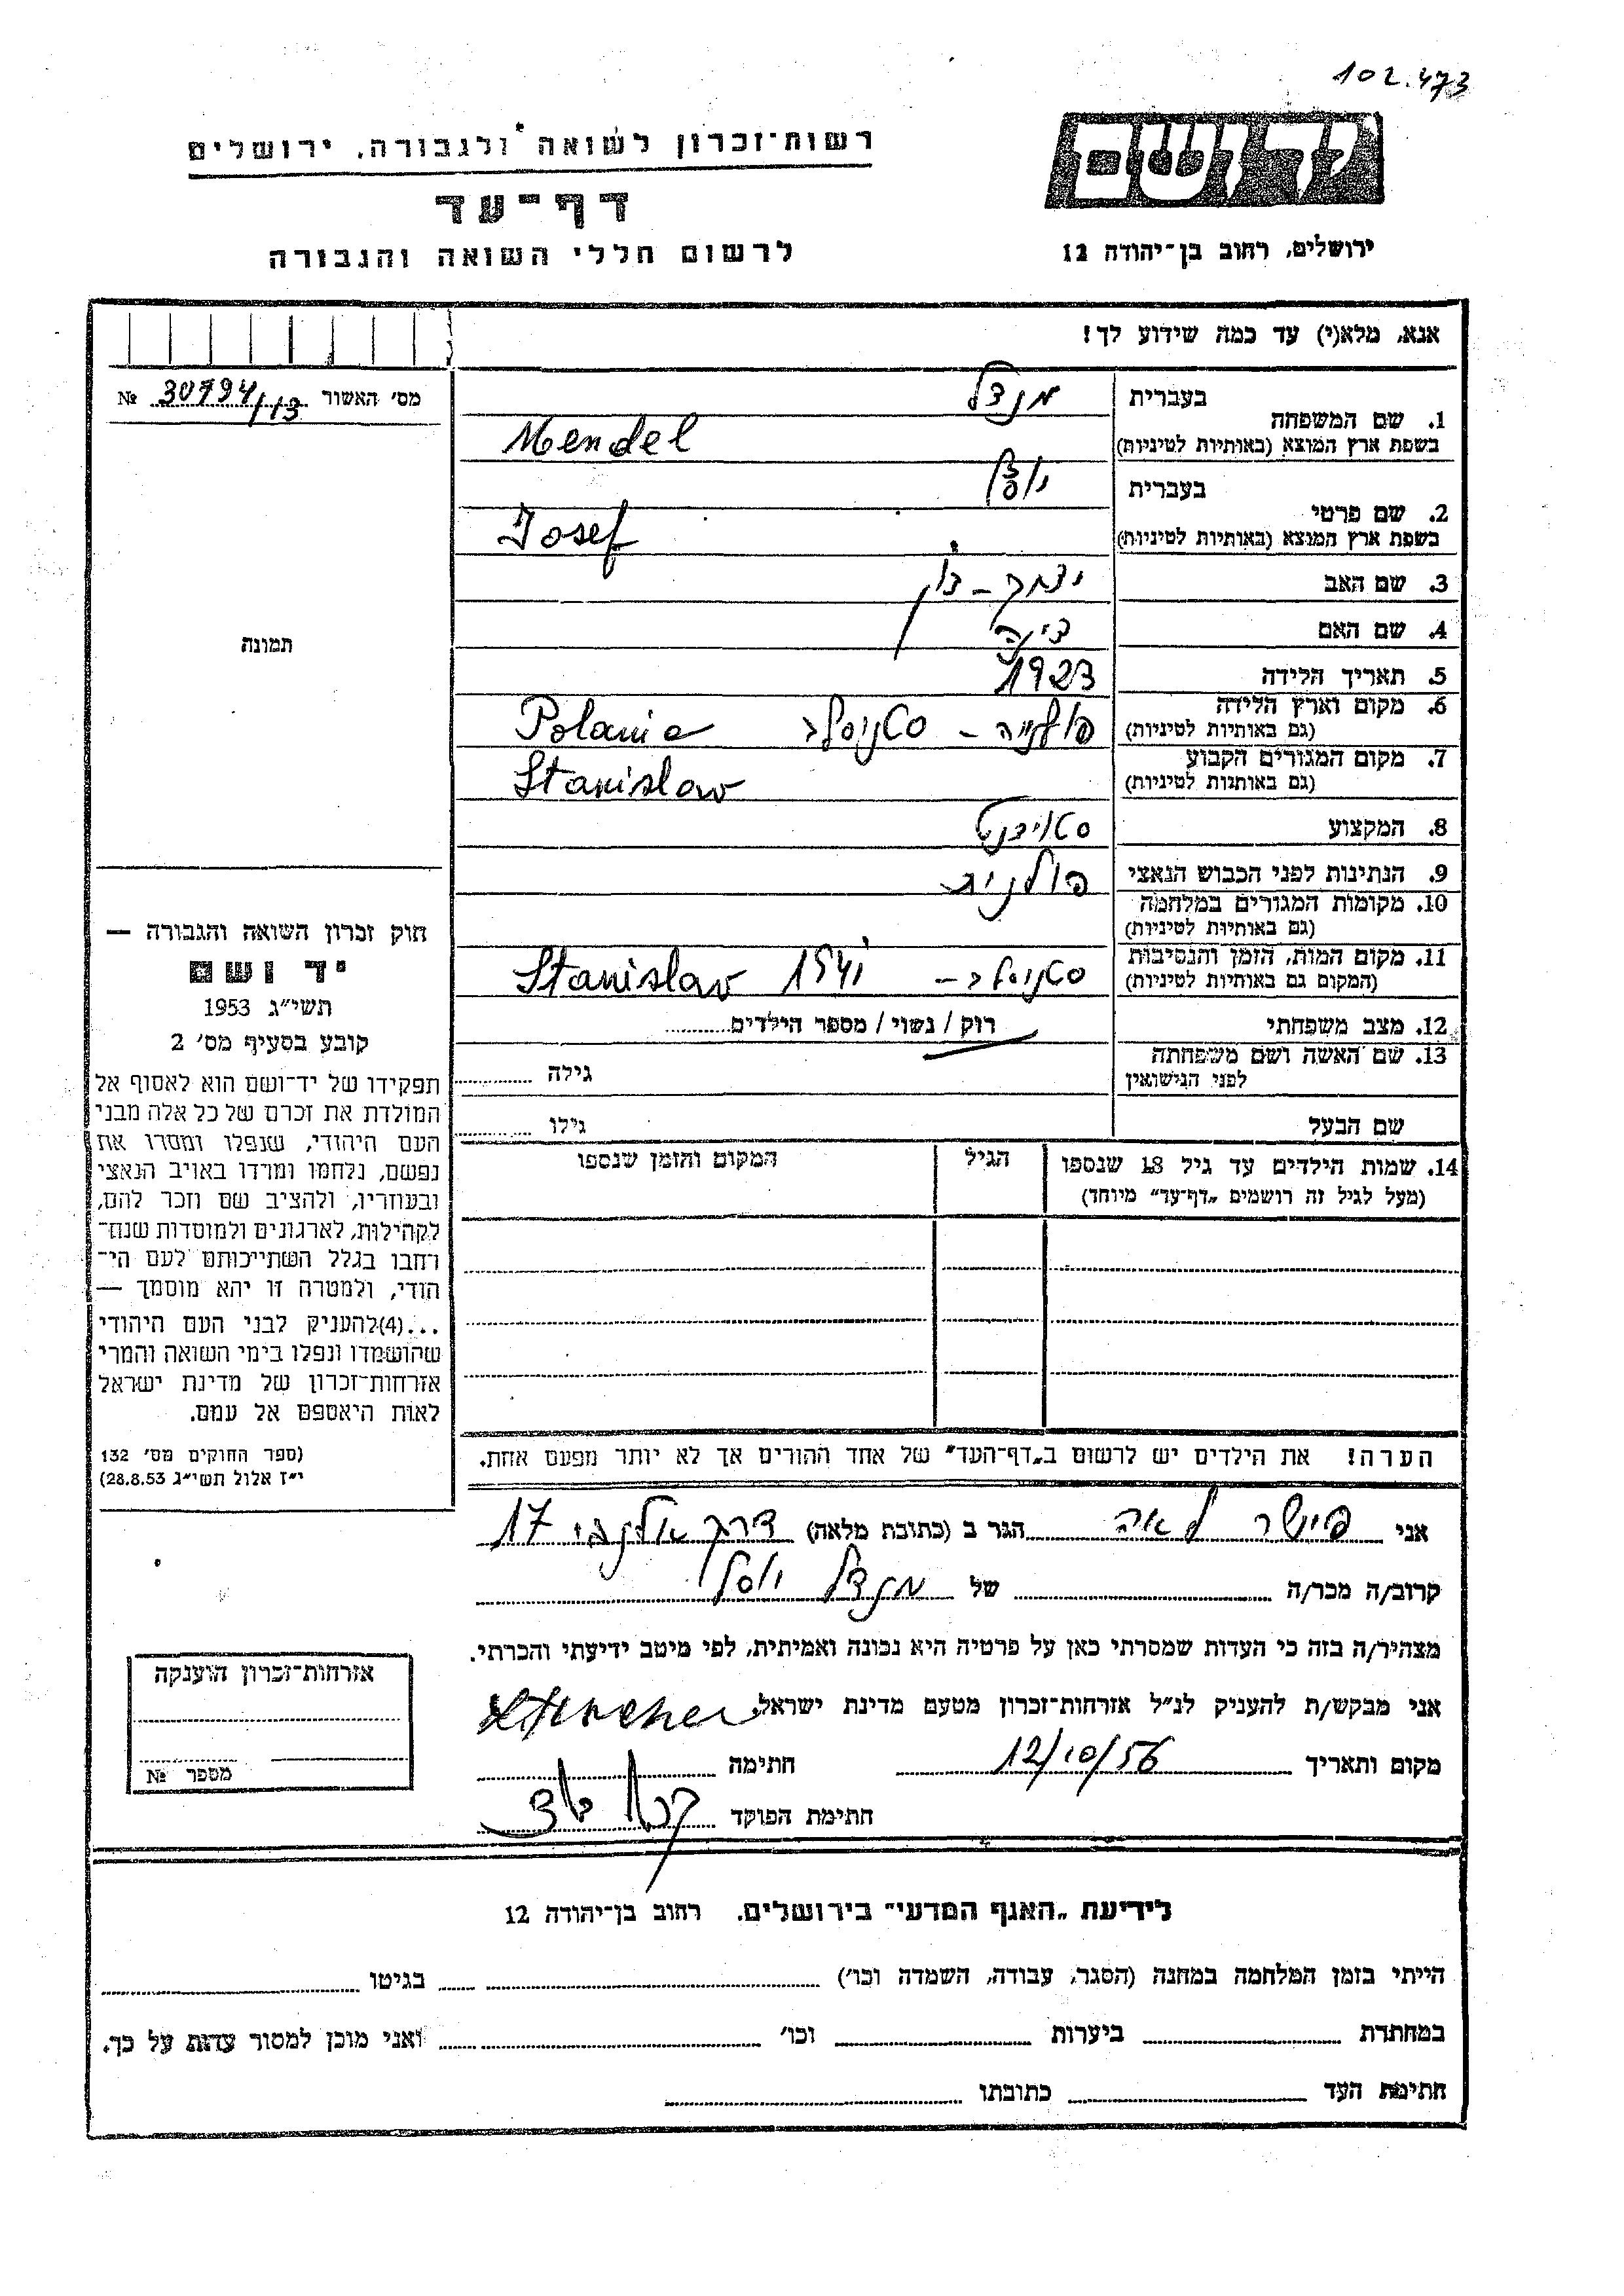 102.473
יד ושם
ירושלים, רחוב בן־יהודה 12
רשות־זכרון לשואה ולגבורה, ירושלים
דף־עד
לרשום חללי השואה והגבורה
אנא, מלא(י) עד כמה שידוע לך!
מס׳ האשור 30794/13 №
בעברית מנדל
1. שם המשפחה
בשפת ארץ המוצא (באותיות לטיניות) Mendel
בעברית
2. שם פרטי
בשפת ארץ המוצא (באותיות לטיניות) Josef
3. שם האב יצחק –
4. שם האם
5. תאריך הלידה 1923
6. מקום וארץ הלידה
(גם באותיות לטיניות) פולניה – סטניסלב Polania
7. מקום המגורים הקבוע
(גם באותיות לטיניות) Stanislaw
8. המקצוע סטודנט
9. הנתינות לפני הכבוש הנאצי פולנית
10. מקומות המגורים במלחמה
(גם באותיות לטיניות)
11. מקום המות, הזמן והנסיבות
(המקום גם באותיות לטיניות) סטניסלב – 1941 Stanislaw
12. מצב משפחתי רוק / נשוי / מספר הילדים
13. שם האשה ושם משפחתה
לפני הנישואין גילה
שם הבעל גילו
14. שמות הילדים עד גיל 18 שנספו הגיל המקום והזמן שנספו
(מעל לגיל זה רושמים „דף־עד״ מיוחד)
הערה! את הילדים יש לרשום ב„דף־העד״ של אחד ההורים אך לא יותר מפעם אחת.
תמונה
חוק זכרון השואה והגבורה —
יד ושם
תשי״ג 1953
קובע בסעיף מס׳ 2
תפקידו של יד־ושם הוא לאסוף אל
המולדת את זכרם של כל אלה מבני
העם היהודי, שנפלו ומסרו את
נפשם, נלחמו ומרדו באויב הנאצי
ובעוזריו, ולהציב שם וזכר להם,
לקהילות, לארגונים ולמוסדות שנח־
רבו בגלל השתייכותם לעם הי־
הודי, ולמטרה זו יהא מוסמך —
...(4)להעניק לבני העם היהודי
שהושמדו ונפלו בימי השואה והמרי
אזרחות־זכרון של מדינת ישראל
לאות היאספם אל עמם.
(ספר החוקים מס׳ 132
י״ז אלול תשי״ג 28.8.53)
אני פישר לאה הגר ב (כתובת מלאה) דרך אלנבי 17
קרוב/ה מכר/ה של מנדל יוסף
מצהיר/ה בזה כי העדות שמסרתי כאן על פרטיה היא נכונה ואמיתית, לפי מיטב ידיעתי והכרתי.
אני מבקש/ת להעניק לנ״ל אזרחות־זכרון מטעם מדינת ישראל.
מקום ותאריך 12/10/56 חתימה
חתימת הפוקד
אזרחות־זכרון הוענקה
מספר №
לידיעת „האגף המדעי״ בירושלים. רחוב בן־יהודה 12
הייתי בזמן המלחמה במחנה (הסגר, עבודה, השמדה וכו׳) בגיטו
במחתרת ביערות וכו׳ ואני מוכן למסור עדות על כך.
חתימת העד כתובתו